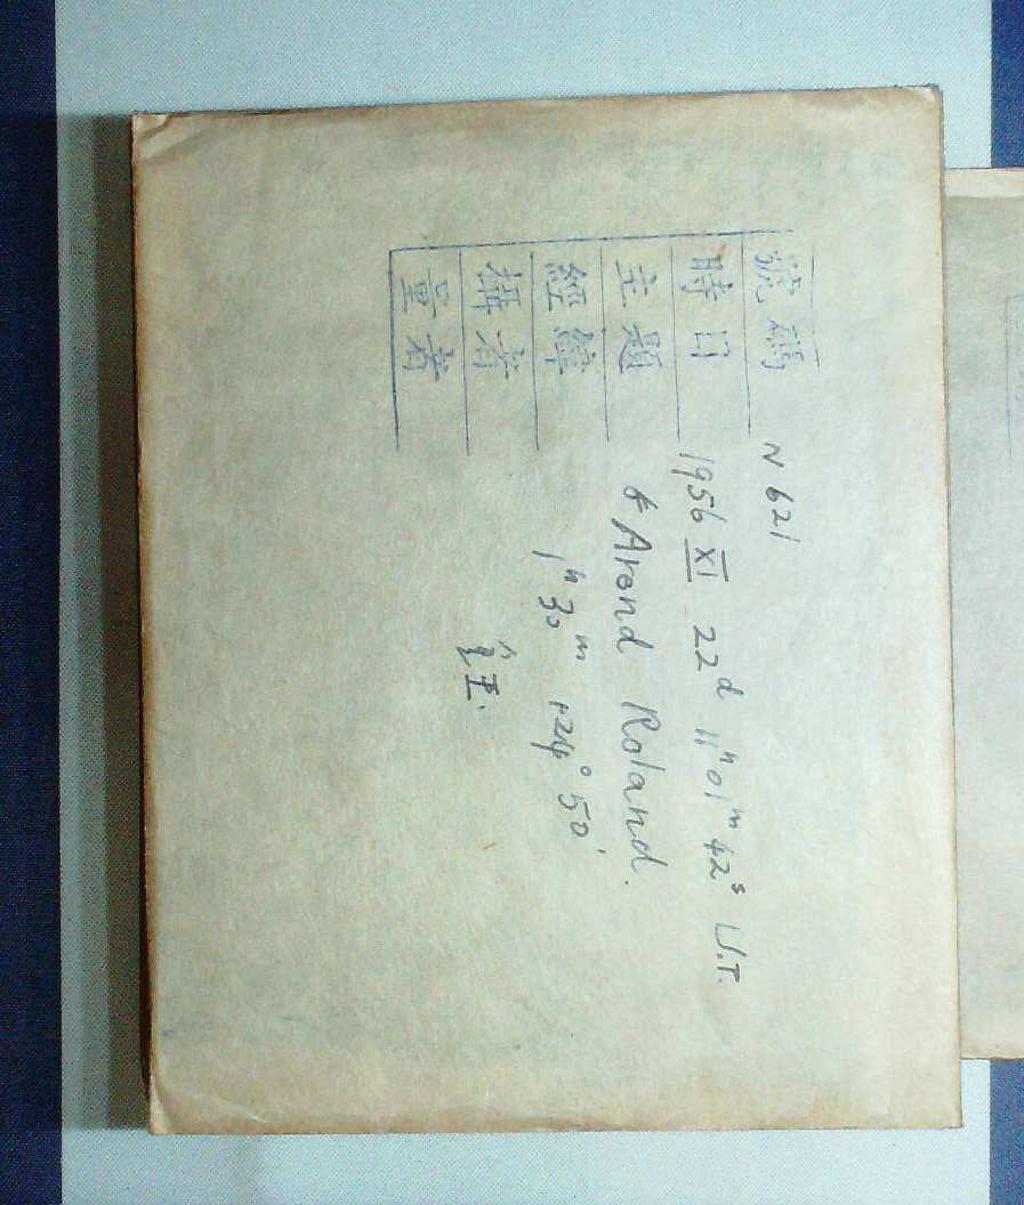 號碼 N 621
時日 1956 XI 22d 11h 01m 42s U.T.
主題 Arend Roland.
經緯 1h 30m +24° 50'
攝者
量者